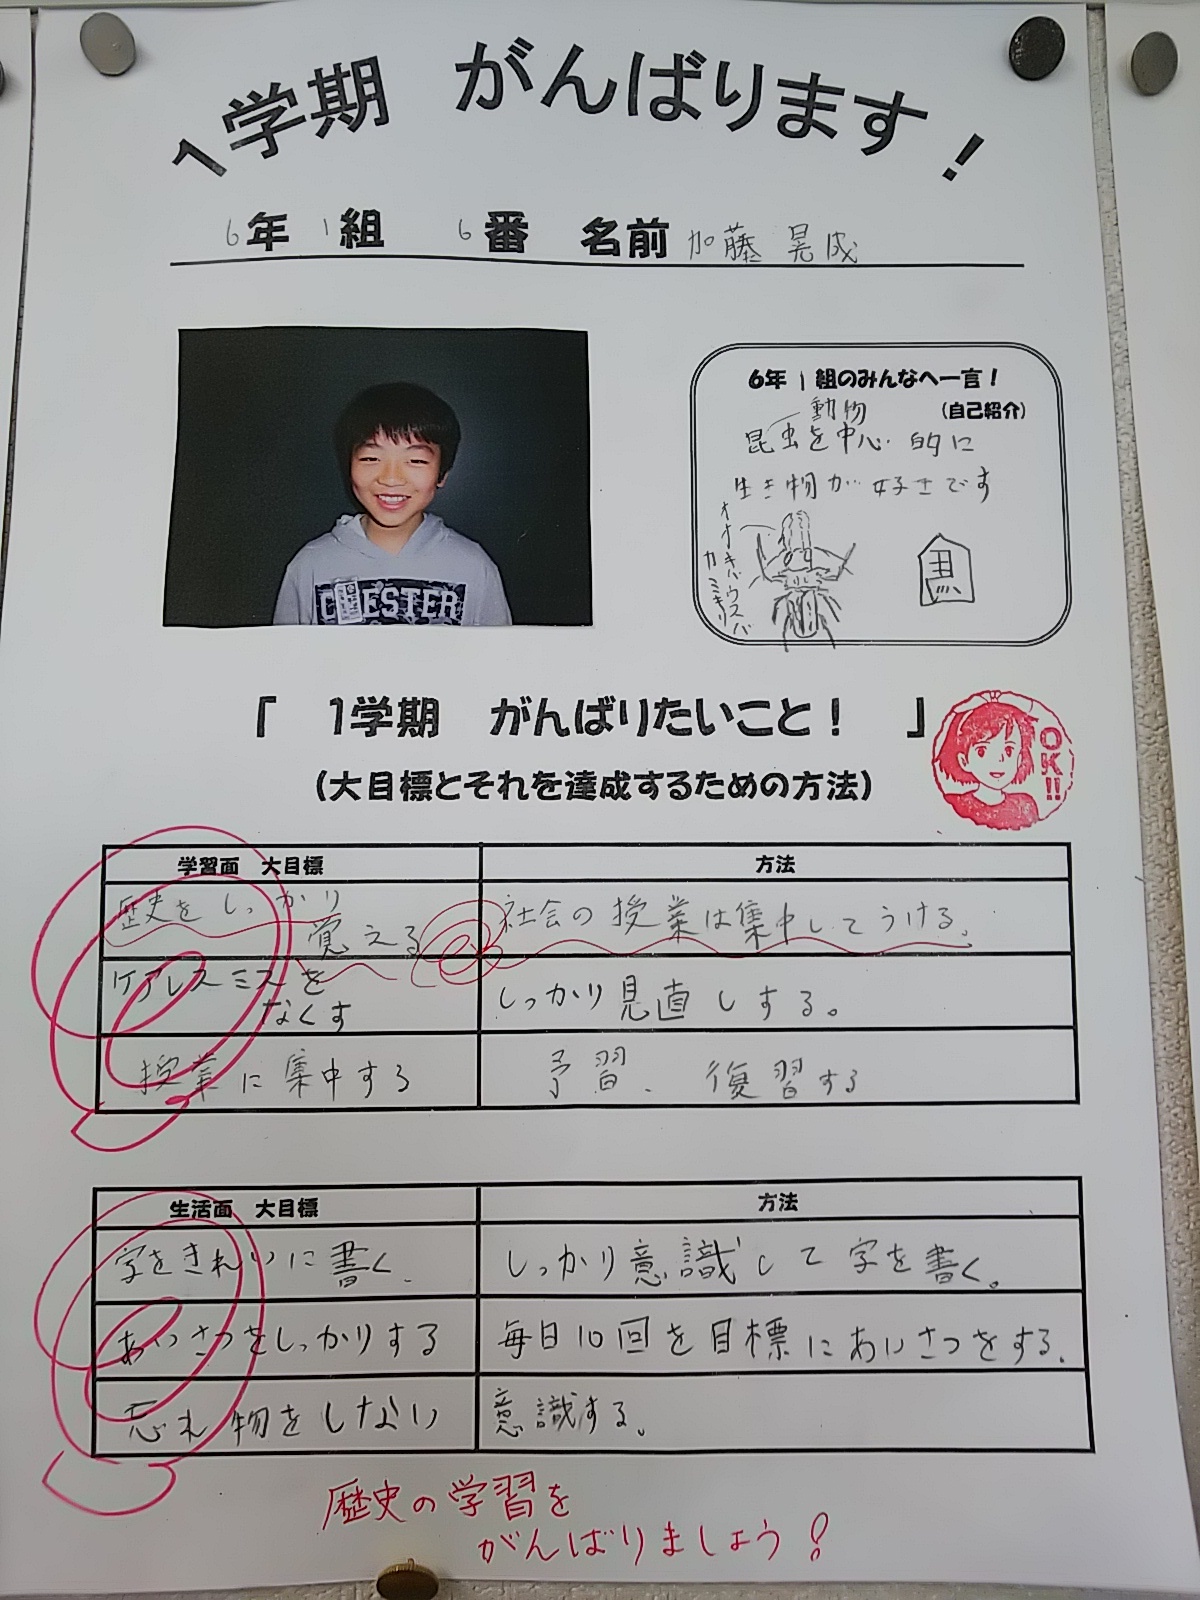 1学期 がんばります!
6年 1組 6番 名前 加藤 晃成
6年 1 組のみんなへ一言!
(自己紹介)
動物
昆虫を中心的に
生き物が好きです
オオキバウスバ
カミキリ
黒
CHESTER
「 1学期 がんばりたいこと! 」
(大目標とそれを達成するための方法)
OK!!
学習面 大目標 方法
歴史をしっかり
覚える 社会の授業は集中してうける。
ケアレスミスを
なくす しっかり見直しする。
授業に集中する 予習、復習する
生活面 大目標 方法
字をきれいに書く。 しっかり意識して字を書く。
あいさつをしっかりする 毎日10回を目標にあいさつをする。
忘れ物をしない 意識する。
歴史の学習を
がんばりましょう!